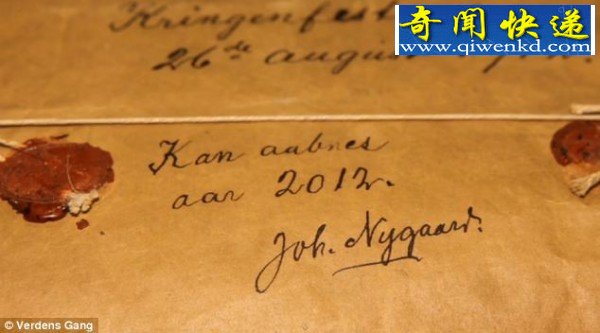 奇闻快递
www.qiwenkd.com
Kringenfest
26de august
Kan aabnes
aar 2012.
Joh. Nygaard.
© Verdens Gang